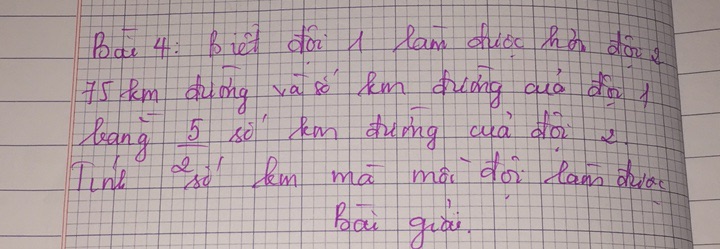 Bài 4: Biết đội 1 làm được hơn đội 2
75 km đường và số km đường của đội 1
bằng 5/2 số km đường của đội 2.
Tính số km mà mỗi đội làm được
Bài giải.